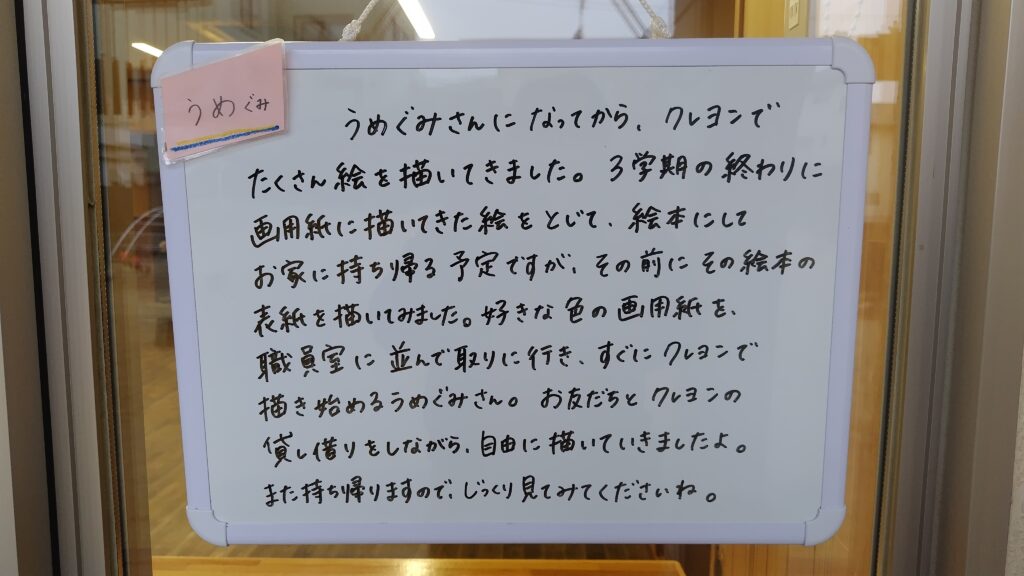 うめぐみ
うめぐみさんになってから、クレヨンで
たくさん絵を描いてきました。3学期の終わりに
画用紙に描いてきた絵をとじて、絵本にして
お家に持ち帰る予定ですが、その前にその絵本の
表紙を描いてみました。好きな色の画用紙を、
職員室に並んで取りに行き、すぐにクレヨンで
描き始めるうめぐみさん。お友だちとクレヨンの
貸し借りをしながら、自由に描いていきましたよ。
また持ち帰りますので、じっくり見てみてくださいね。